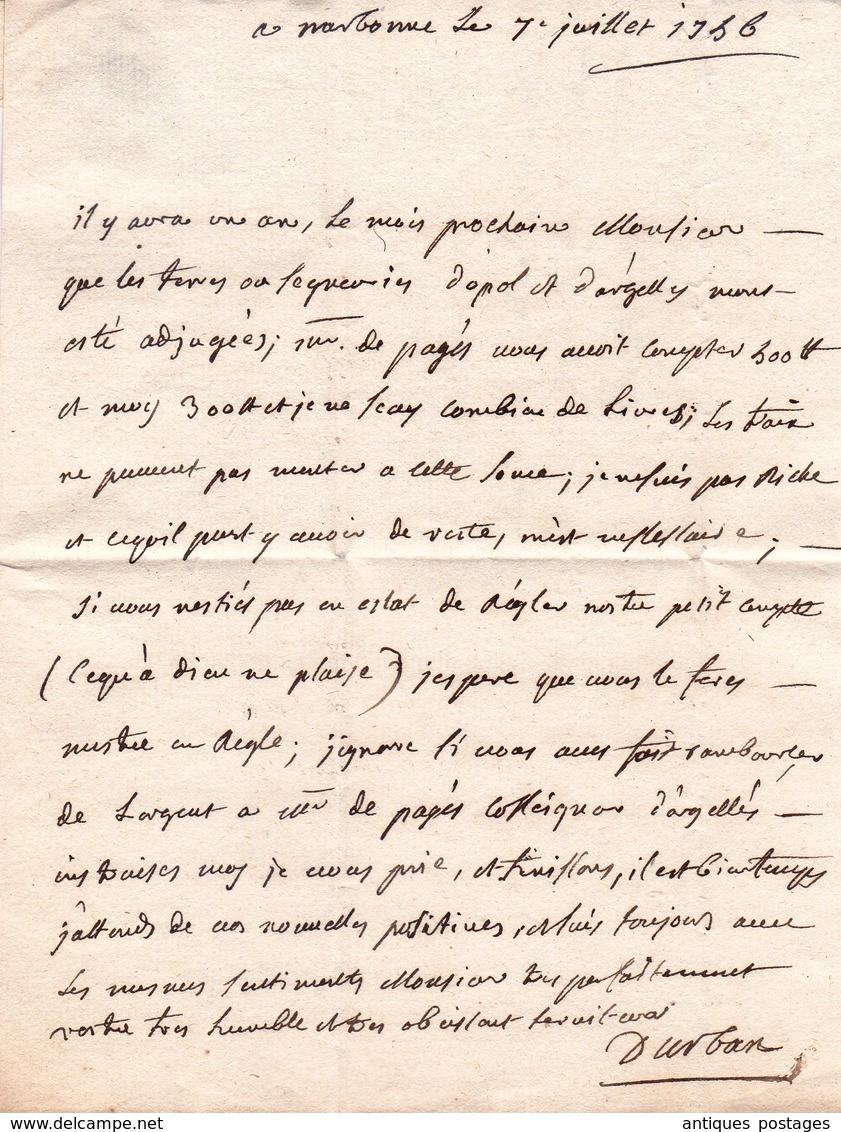 a narbonne Le 7e juillet 1756
il y aura un an, Le mois prochain Monsieur —
que les terres ou segneuries d'opol et d'argelles nous —
esté adjugées; Mr. de pagés vous avoit compter 500tt
et moy 300tt et je ne scay combien de Livres; Les frais
ne peuvent pas monter a cette some; je ne suis pas Riche
et ce qu'il peut y avoir de reste, m'est nessessaire; —
si vous nestiés pas en estat de Régler nostre petit compte
(ce qu'a dieu ne plaise) jespere que vous le feres —
mettre en Régle; jignore si vous aves fait rambourcer
de Largent a Mr de pagés cosseigneur d'argellés —
instruises moy je vous prie, et finissons, il est bien temps
j'attends de vos nouvelles positives, et suis toujours avec
Les mesmes sentiments Monsieur tres parfaitement
vostre tres humble et tres obeissant serviteur
Durban
www.delcampe.net
antiques postages